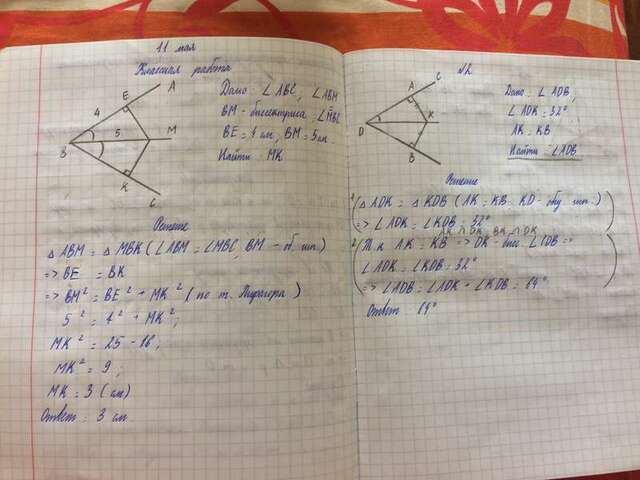 11 мая
Классная работа
A
E
4
B
5
M
K
C
Дано: ∠ABC, ∠ABM
BM - биссектриса, ∠MBC
BE = 4 см, BM = 5 см
Найти MK
Решение
Δ ABM = Δ MBK (∠ABM = ∠MBC, BM - общ.)
=> BE = BK
=> BM² = BE² + MK² (по т. Пифагора)
5² = 4² + MK²;
MK² = 25 - 16;
MK² = 9;
MK = 3 (см)
Ответ: 3 см
№2
D
A
C
K
B
Дано: ∠ADB,
∠ADK = 32°
AK = KB
Найти - ∠ADB
Решение
Δ ADK = Δ KDB (AK = KB; KD - общ.)
=> ∠ADK = ∠KDB = 32°
2) Т.к AK = KB => DK - ∠ADB =>
∠ADK = ∠KDB = 32°
=> ∠ADB = ∠ADK + ∠KDB = 64°
Ответ 64°